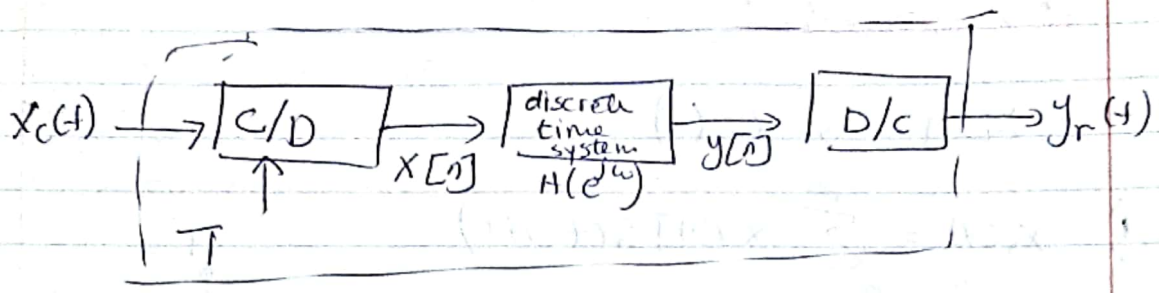 x_c(t)
C/D
T
x[n]
discrete
time
system
H(e^{jω})
y[n]
D/C
y_r(t)